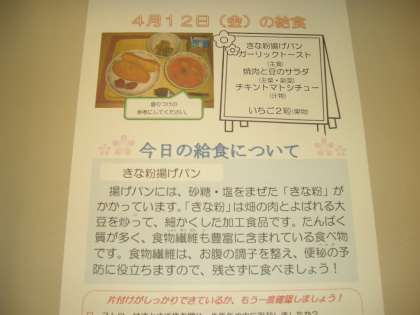 4月12日（金）の給食
きな粉揚げパン
ガーリックトースト
（主食）
焼肉と豆のサラダ
（主菜・副菜）
チキントマトシチュー
（汁物）
いちご2粒（果物）
盛りつけの
参考にしてください。
今日の給食について
きな粉揚げパン
揚げパンには、砂糖・塩をまぜた「きな粉」が
かかっています。「きな粉」は畑の肉とよばれる大
豆を炒って、細かくした加工食品です。たんぱく
質が多く、食物繊維も豊富に含まれている食べ物
です。食物繊維は、お腹の調子を整え、便秘の予
防に役立ちますので、残さずに食べましょう！
片付けがしっかりできているか、もう一度確認しましょう！